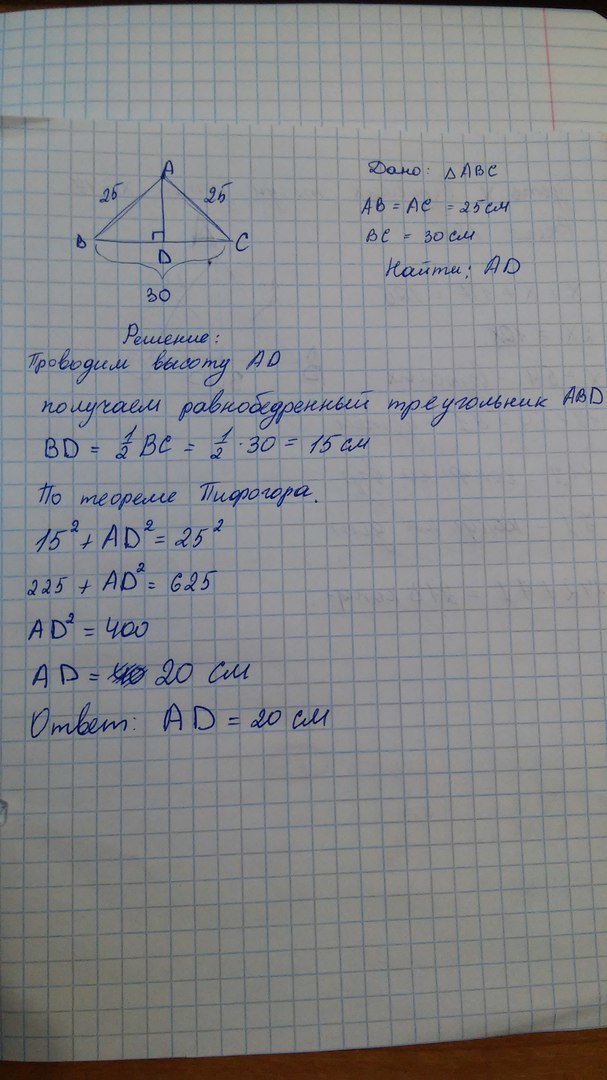 A
25 25
B D C
30
Дано: △ABC
AB = AC = 25 см
BC = 30 см
Найти: AD
Решение:
Проводим высоту AD
получаем равнобедренный треугольник ABD
BD = 1/2 BC = 1/2 · 30 = 15 см
По теореме Пифогора.
15² + AD² = 25²
225 + AD² = 625
AD² = 400
AD = 20 см
Ответ: AD = 20 см